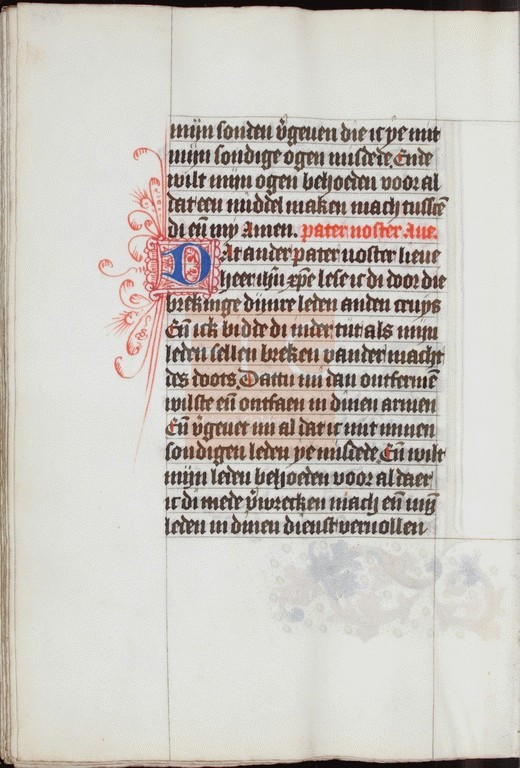 mijn sonden v̄geuen die ic ye mit
mijn sondige ogen misdede Ende
wilt mijn ogen behoeden voor al
dat een middel maken mach tusschē
di eñ my Amen. pater noster Aue.
Dat ander pater noster lieue
heer ihū xpe lese ic di door die
brekinge dijnre leden anden cruys
Eñ ick bidde di inder tijt als mijn
leden sellen breken vander macht
des doots Dattu mi dan ontfermē
wilste eñ ontfaen in dinen armen
Eñ v̄geuet mi al dat ic mit minen
sondigen leden ye misdede Eñ wilt
mijn leden behoeden voor al daer
ic di mede v̄wrecken mach eñ mijn
leden in dinen dienst veruollen